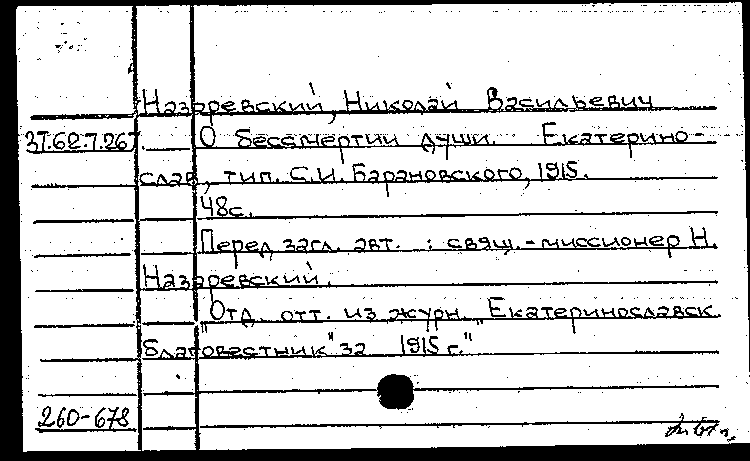 Назаревский, Николай Васильевич
37.62.7.267. О бессмертии души. Екатерино-
слав, тип. С.И. Барановского, 1915.
48с.
Перед загл. авт. : свящ.-миссионер Н.
Назаревский.
"Отд. отт. из журн. "Екатеринославск.
благовестник" за 1915 г."
260-678